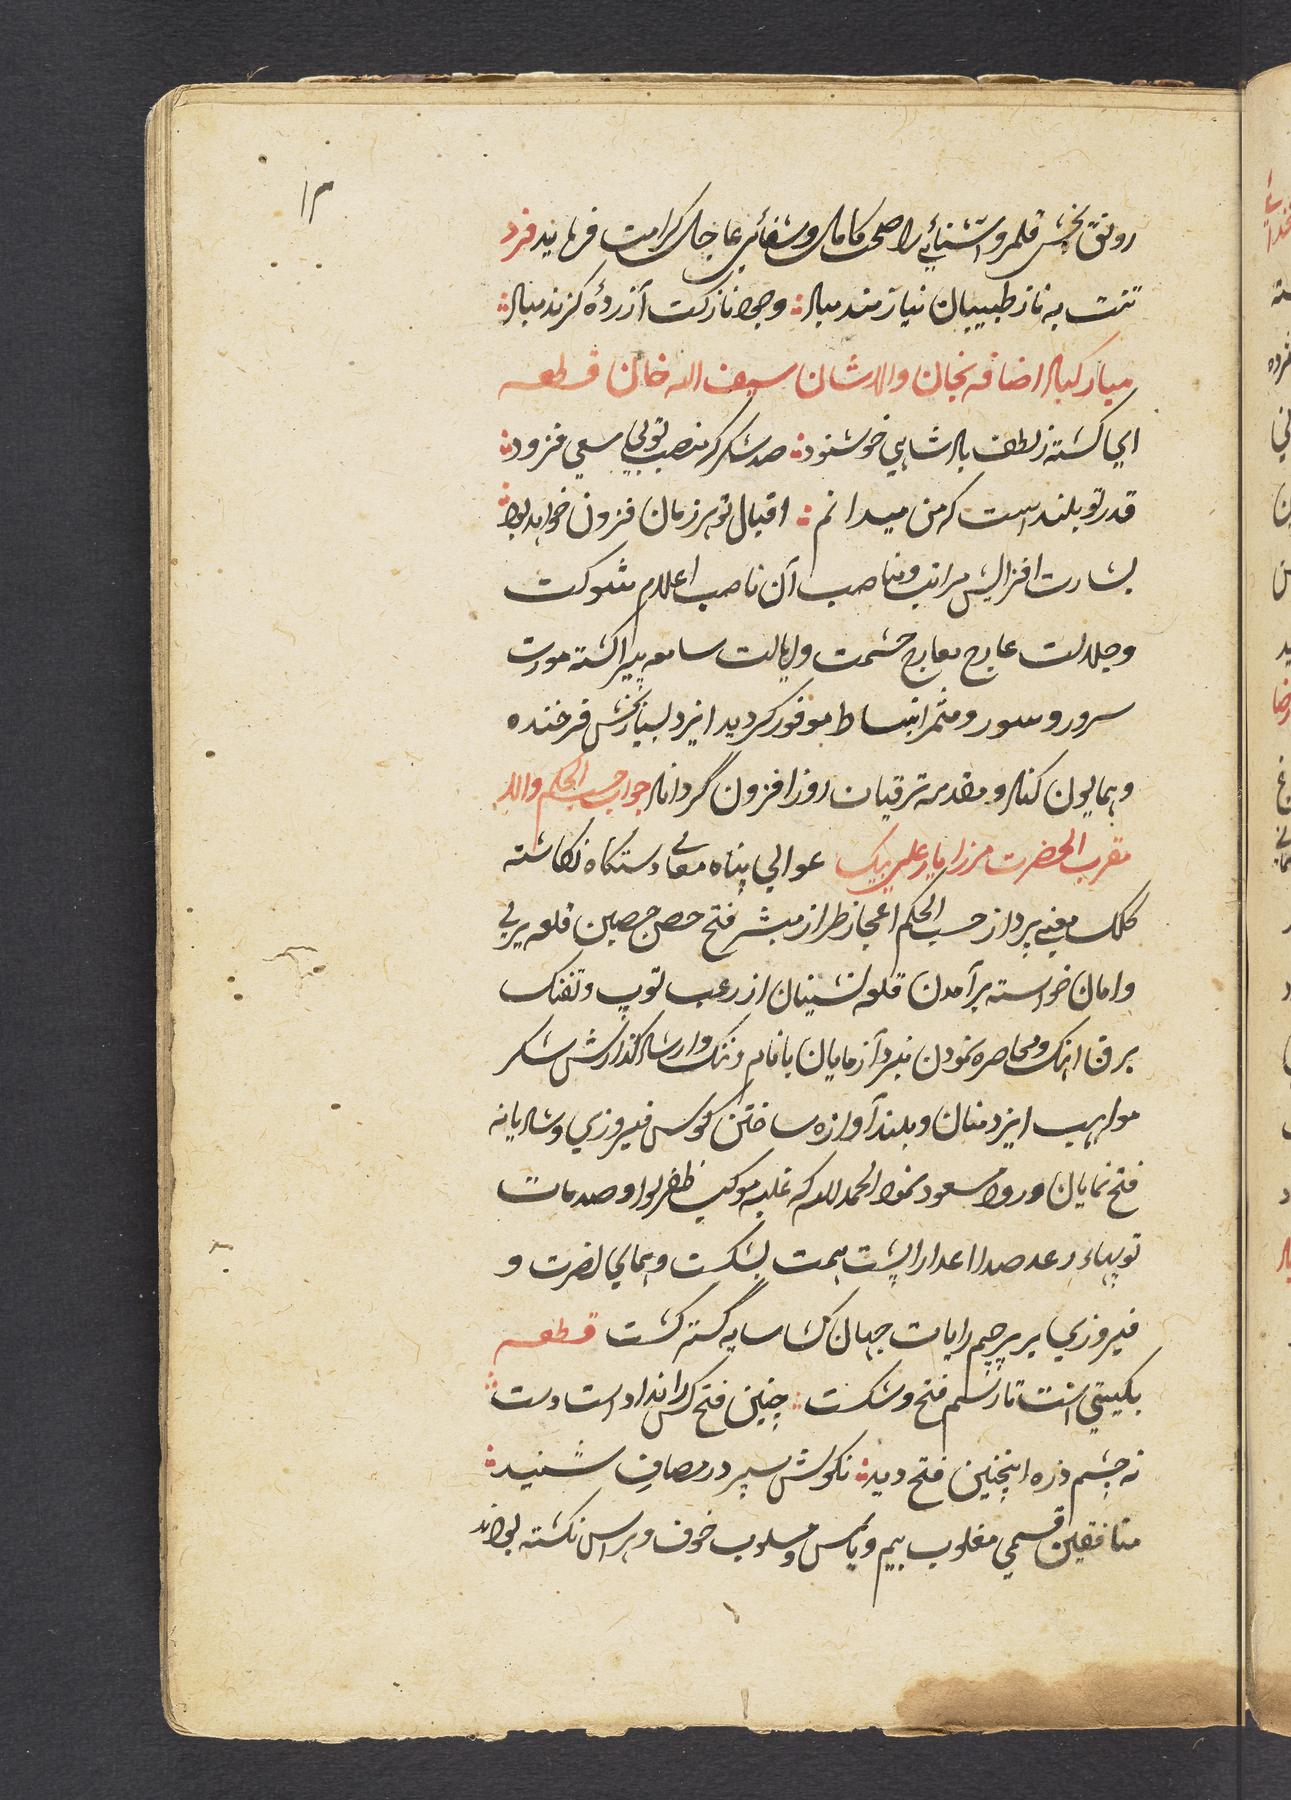 ۱۳
رونق بخش قلمرو آشنائی را صحت کامل و شفائی عاجل کرامت فرمایند فرد
تنت به ناز طبیبان نیازمند مباد وجود نازکت آزردهٔ گزند مباد
مبارکباد اضافه بخان والاشان سیف الله خان قطعه
ای گشته ز لطف بادشاهی خوشنود صد شکر که منصب تو بی سعی فزود
قدر تو بلند است که من میدانم اقبال تو هر زمان فزون خواهد بود
بشارت افزایش مراتب و مناصب آن ناصب اعلام شوکت
و جلالت عارج معارج حشمت و ایالت سامعه پیرا گشته مورث
سرور و سور و مثمر انبساط موفور گردید ایزد بسیار بخش فرخنده
و همایون کناد و مقدمه ترقیات روز افزون گرداناد جواب حسب الحکم والا
مقرب الحضرت مرزا یار علی بیگ عوالی پناه معالی دستگاه نگاشته
کلک معنی پرداز حسب الحکم اعجاز طراز مبشر فتح حصن حصین قلعه پرلی
و امان خواسته برآمدن قلعه نشینان از رعب توپ و تفنگ
برق آهنگ و محاصره نمودن نبرد آزمایان با نام و ننگ و ارشاد گذارش شکر
مواهب ایزد منان و بلند آوازه ساختن کوس فیروزی و شادیانه
فتح نمایان ورود مسعود نمود الحمد لله که غلبه موکب ظفر لوا و صدمات
توپهاء رعد صدا اعدا را پشت همت بشکست و همای نصرت و
فیروزی بر پرچم رایات جهان گشا سایه گستر گشت قطعه
بگیتی است تا رسم فتح و شکست چنین فتح کس را نداد است دست
نه چشم زره اینچنین فتح دید نه گوش سپر در مصاف شنید
منافقین قسمی مغلوب بیم و یأس و مسلوب خوف و هراس نگشته بودند